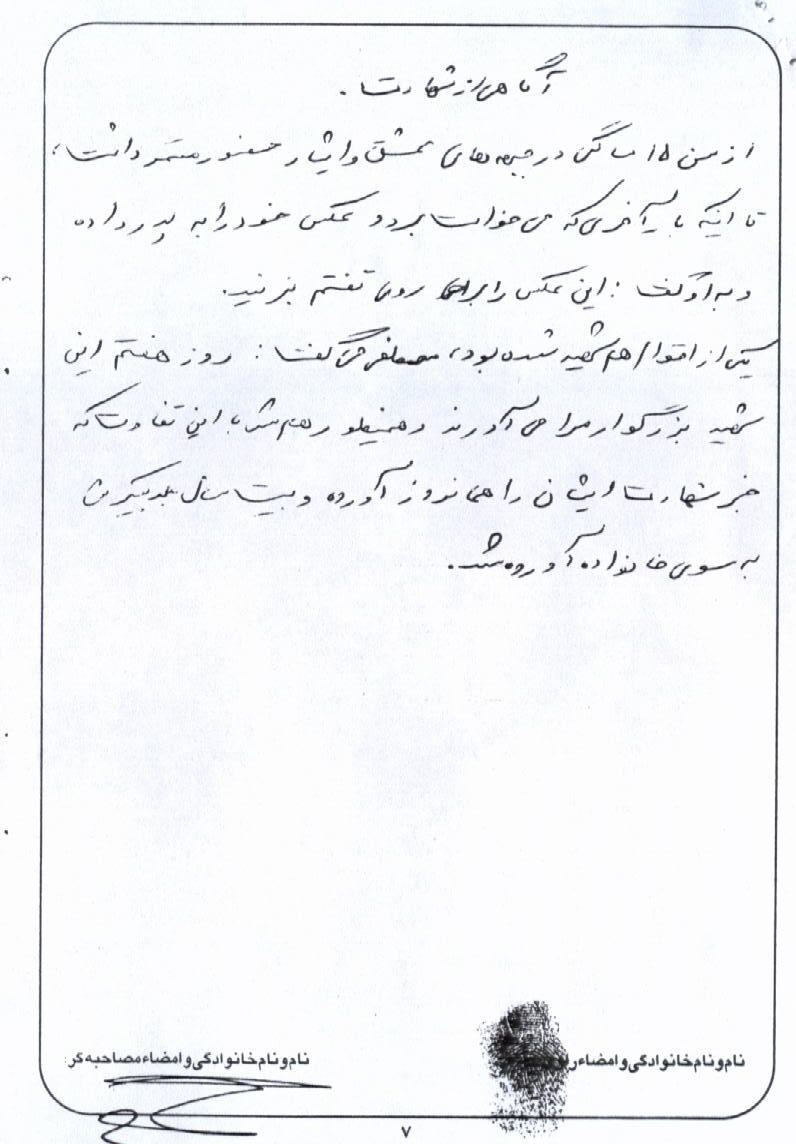 آگاهی از شهادت.
از سن ۱۵ سالگی در جبهه‌های عشق و ایثار حضور مستمر داشت،
تا اینکه بار آخری که می‌خواست برود عکس خود را به پدر داده
و به او گفت: این عکس را برای روی تفتم بزنید.
یکی از اقوام هم شهید شده بود، مصطفی می‌گفت: روز هفتم این
شهید بزرگوار مرا می‌آورند و همینطور هم شد با این تفاوت که
خبر شهادت ایشان را همانروز آورده و بیست سال بعد پیکرش
به سوی خانواده آورده شد.
نام و نام خانوادگی و امضاء
نام و نام خانوادگی و امضاء مصاحبه گر:
۷